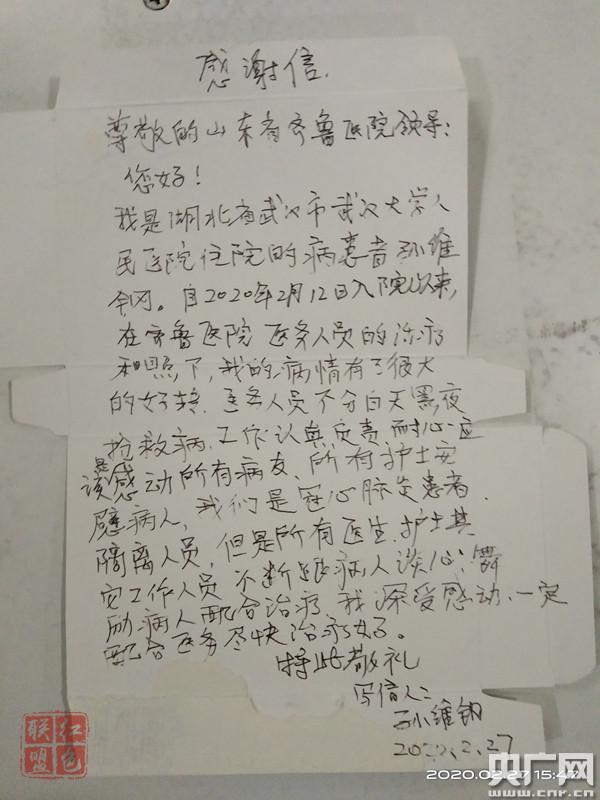 感谢信.
尊敬的山东省齐鲁医院领导:
您好!
我是湖北省武汉市武汉大学人
民医院住院的病患者孙维
钢。自2020年2月12日入院以来,
在齐鲁医院医务人员的治疗
和照下,我的病情有了很大
的好转.医务人员不分白天黑夜
抢救病.工作认真负责.耐心.应
该是感动所有病友、所有护士安
慰病人,我们是冠心肺炎患者.
隔离人员,但是所有医生.护士其
它工作人员不断跟病人谈心.
励病人配合治疗.我深受感动.一定
配合医务尽快治疗好。
特此敬礼
写信人:
孙维钢
2020.2.27
2020.02.27 15:47
红色
联盟
央广网
www.cnr.cn